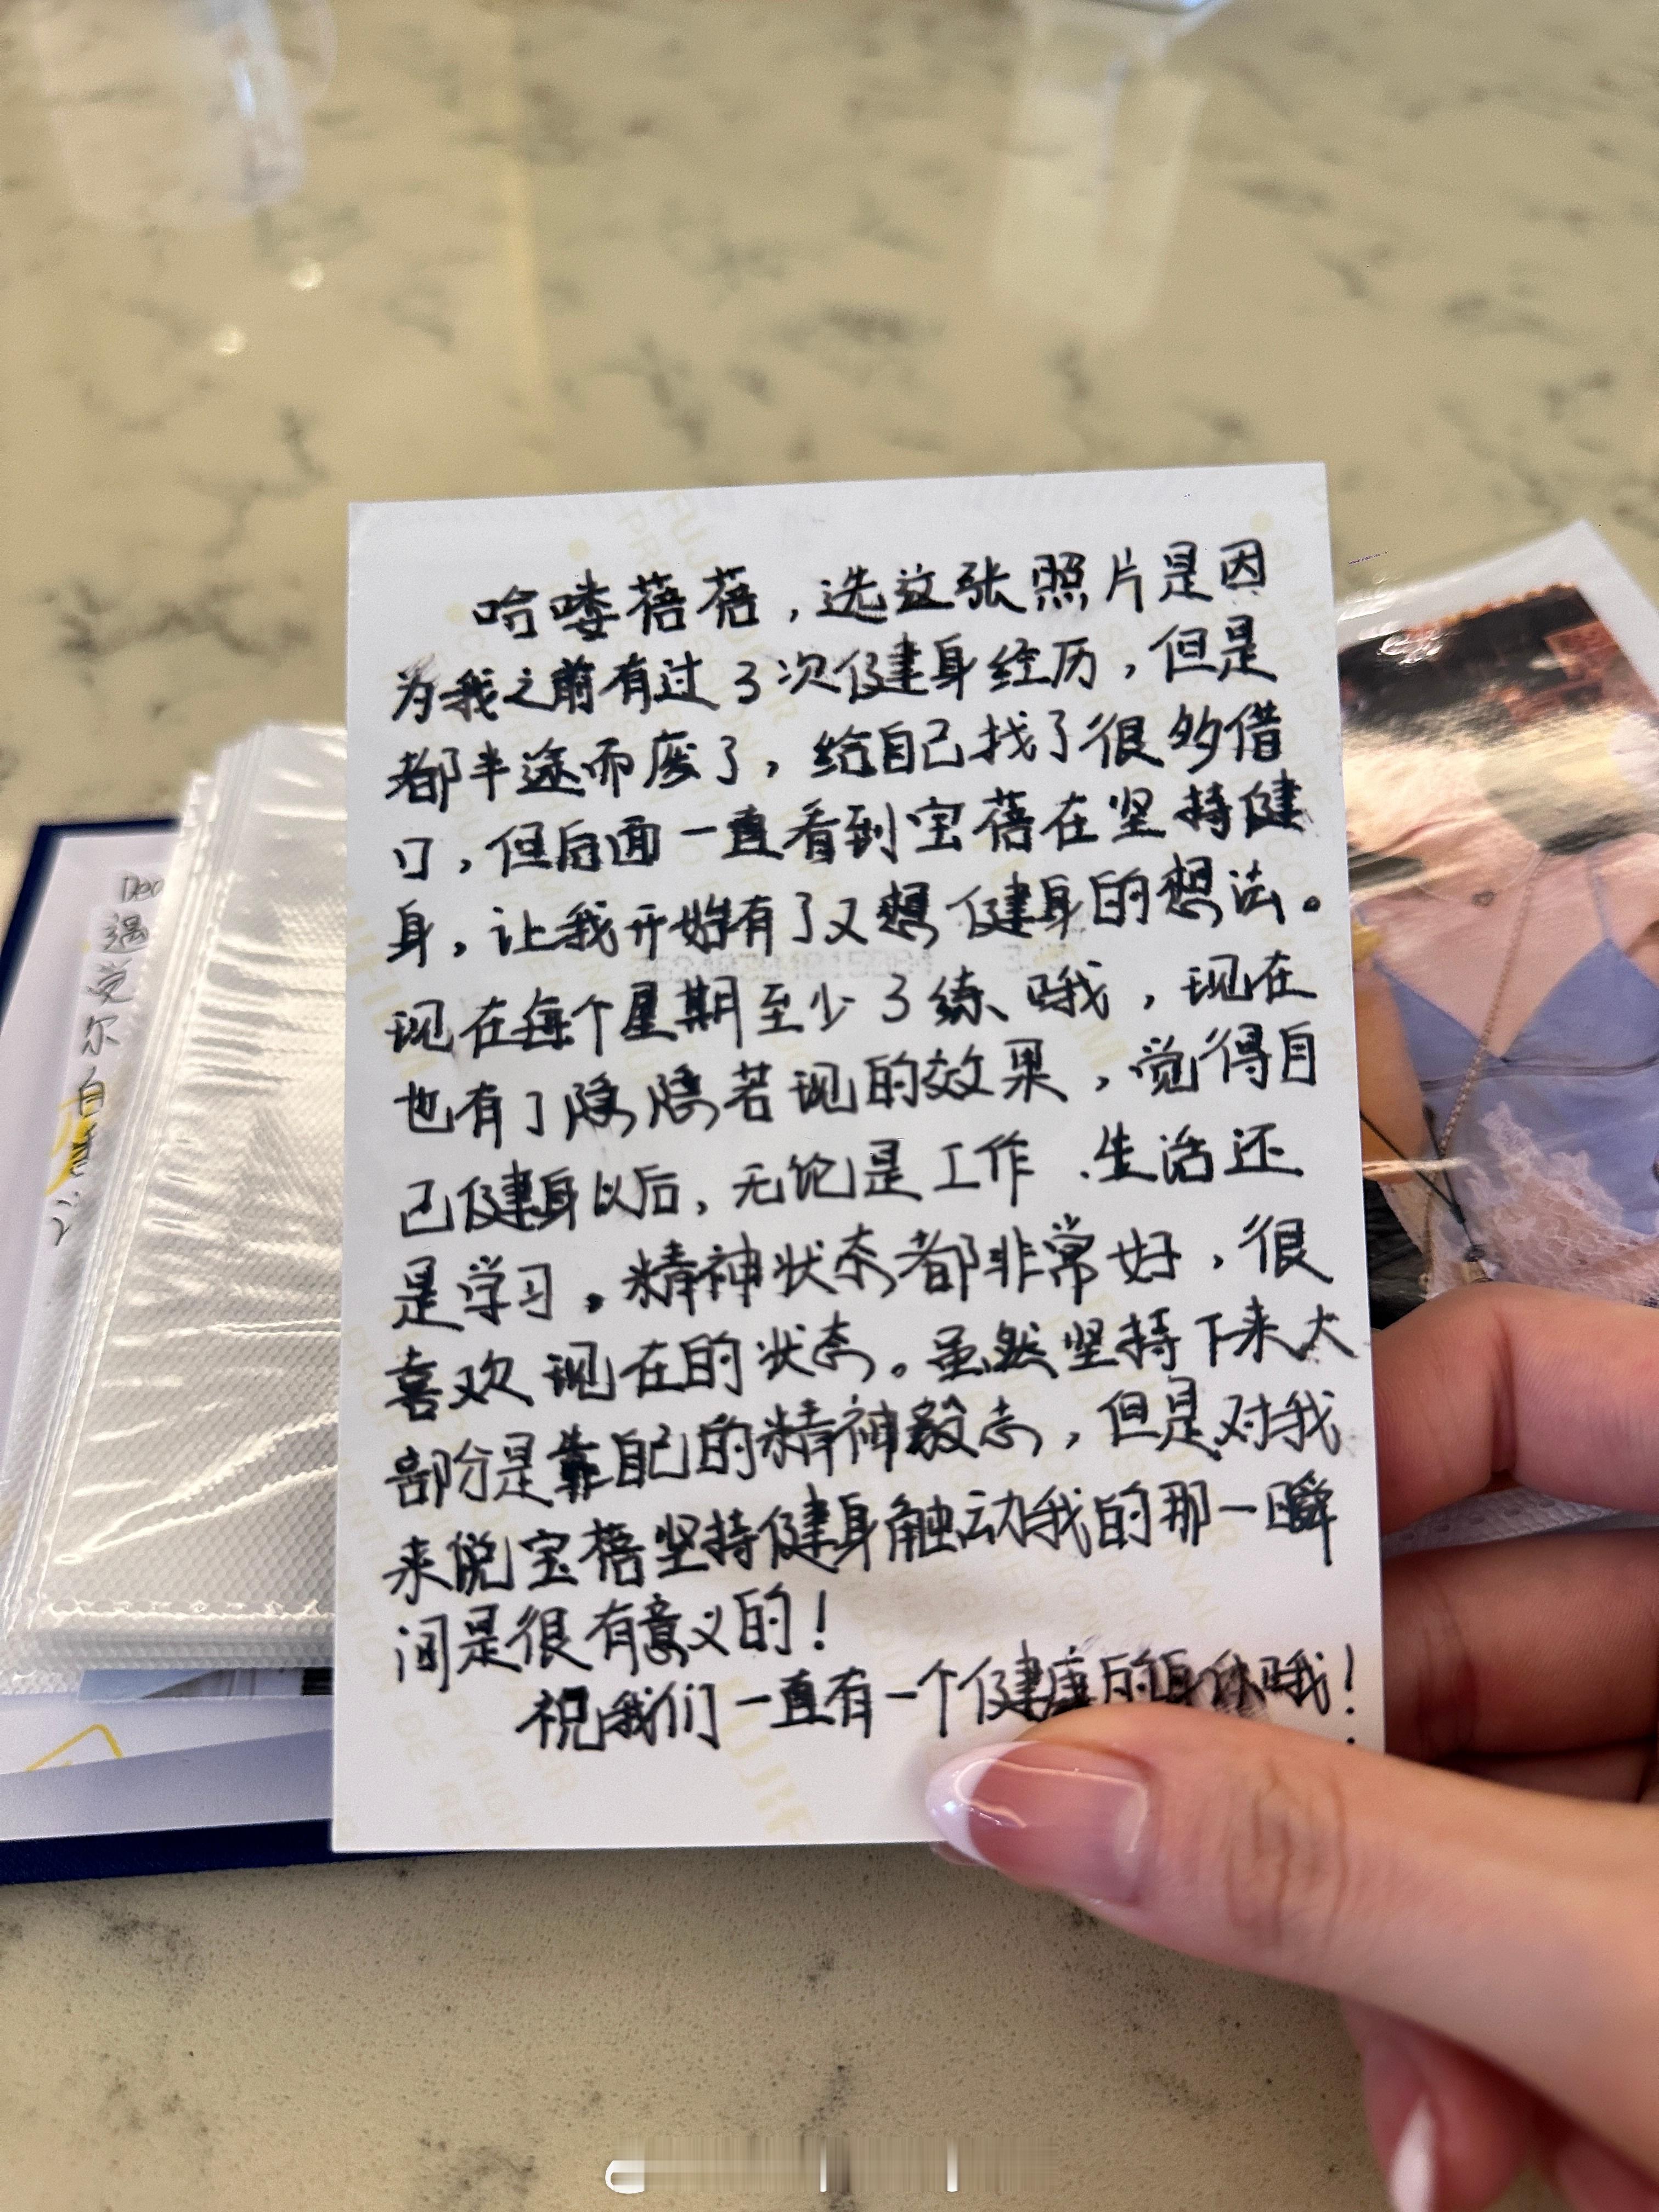 哈喽蓓蓓，选这张照片是因
为我之前有过3次健身经历，但是
都半途而废了，给自己找了很多借
口，但后面一直看到宝蓓在坚持健
身，让我开始有了又想健身的想法。
现在每个星期至少3练哦，现在
也有了隐隐若现的效果，觉得自
己健身以后，无论是工作、生活还
是学习。精神状态都非常好，很
喜欢现在的状态。虽然坚持下来大
部份是靠自己的精神毅志，但是对我
来说宝蓓坚持健身触动我的那一瞬
间是很有意义的！
祝我们一直有一个健康的身体哦！
遇
觉
尔
自